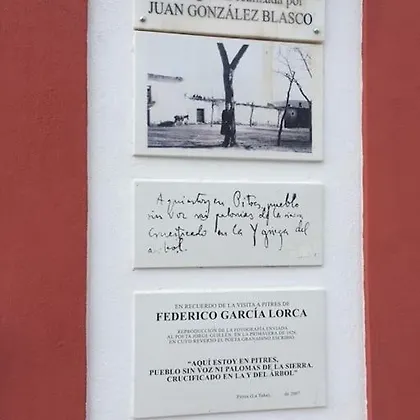 realizada por
JUAN GONZÁLEZ BLASCO
Aquí estoy en Pitres, pueblo
sin voz ni palomas de la sierra
crucificado en la Y griega del
árbol.
EN RECUERDO DE LA VISITA A PITRES DE
FEDERICO GARCÍA LORCA
REPRODUCCIÓN DE LA FOTOGRAFÍA ENVIADA
AL POETA JORGE GUILLÉN EN LA PRIMAVERA DE 1926,
EN CUYO REVERSO EL POETA GRANADINO ESCRIBIÓ
"AQUÍ ESTOY EN PITRES,
PUEBLO SIN VOZ NI PALOMAS DE LA SIERRA.
CRUCIFICADO EN LA Y DEL ÁRBOL"
Pitres (La Taha), de 2007